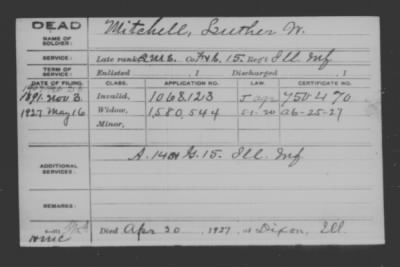 DEAD
NAME OF SOLDIER: Mitchell, Luther W.
SERVICE: Late rank, Co. F & G. 15. Reg't Ill Inf
TERM OF SERVICE: Enlisted , 1 Discharged , 1
DATE OF FILING. CLASS. APPLICATION NO. LAW. CERTIFICATE NO.
1891. Nov 3. Invalid, 1068123 750470
1927 May 16 Widow, 1580,544 a6-25-27
Minor,
ADDITIONAL SERVICES: G. 15. Ill. Inf
REMARKS:
Died Apr 30 , 1927, at Dixon, Ill